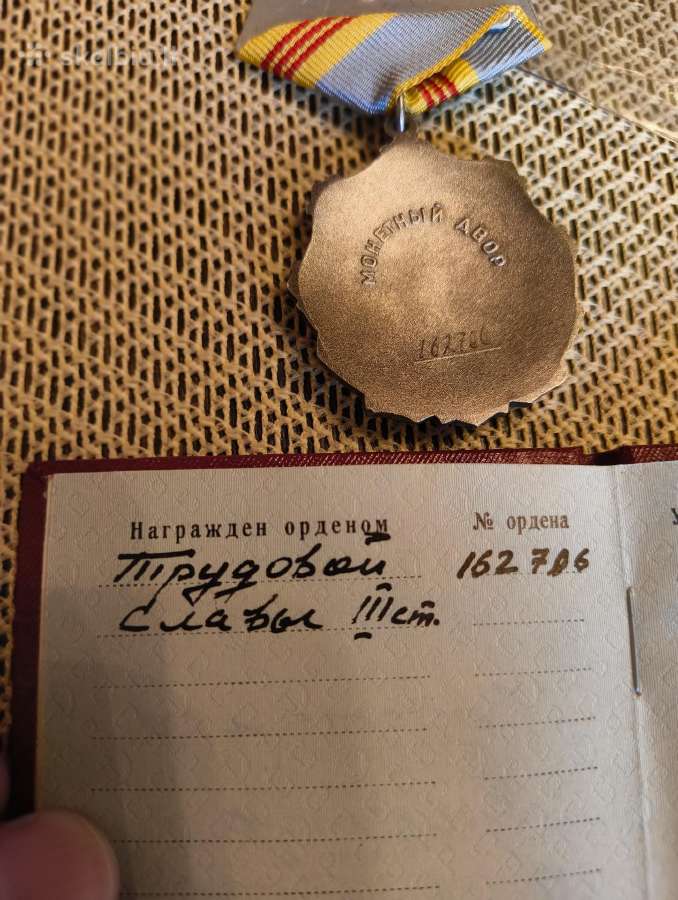 skelbiu.lt
МОНЕТНЫЙ ДВОР
162706
Награжден орденом
№ ордена
Трудовой
162706
Славы III ст.